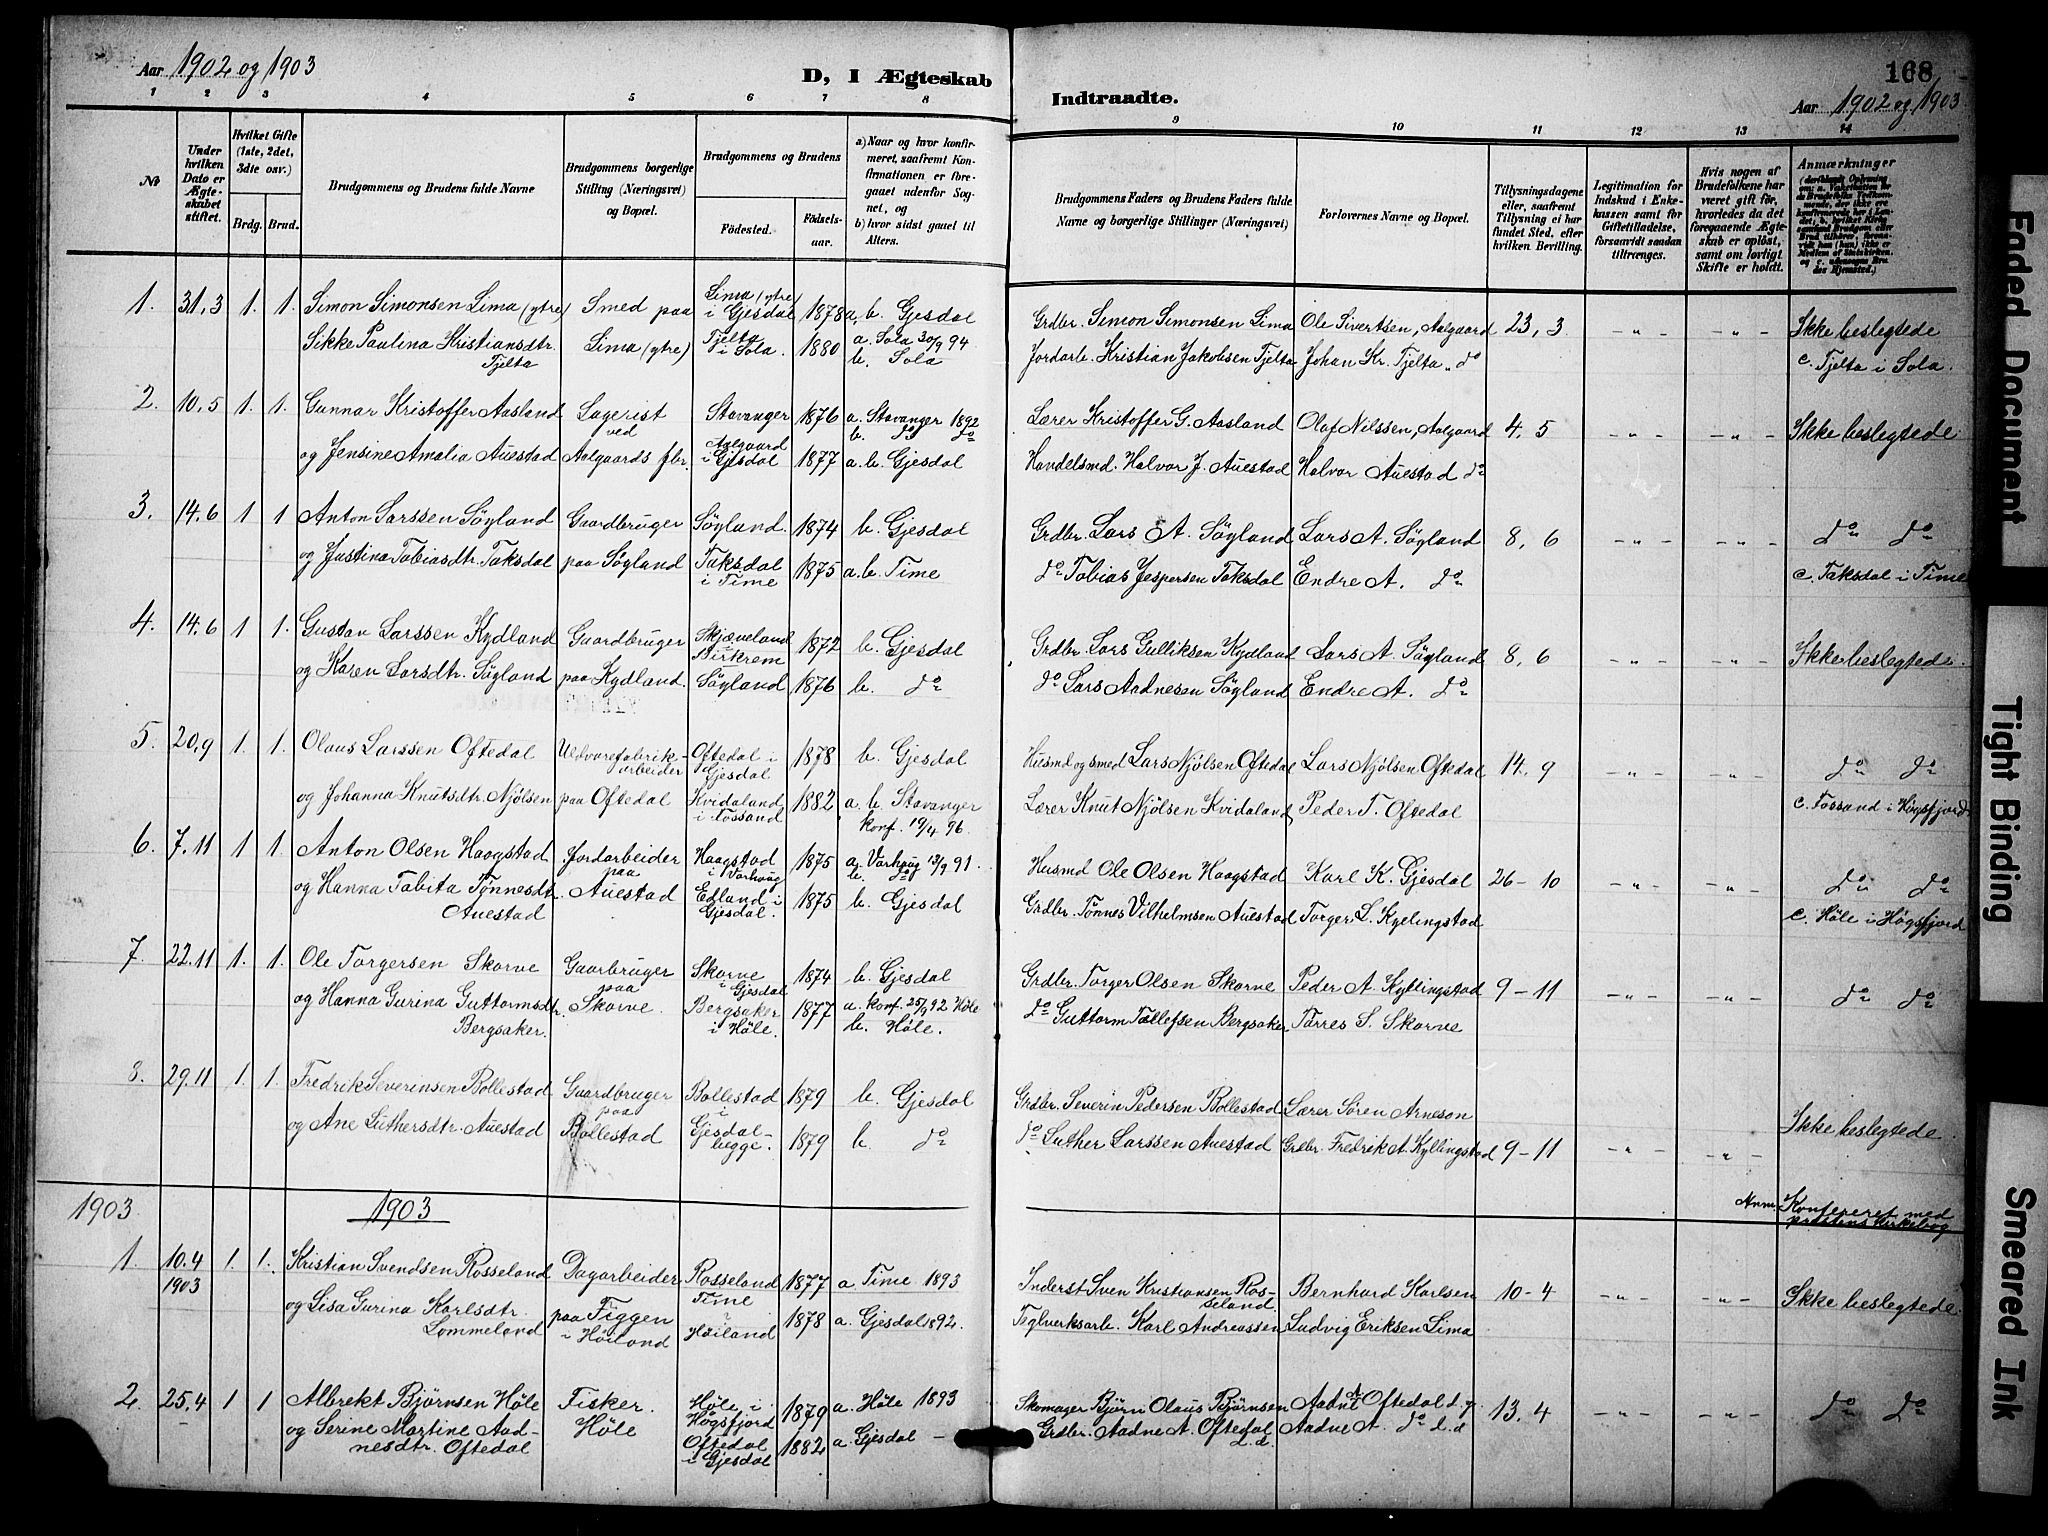 Aar 1902 og 1903
D, I Ægteskab
Indtraadte.
168
Aar 1902 og 1903
1 2 3 4 5 6 7 8 9 10 11 12 13 14
No
Under hvilken Dato er Ægteskabet stiftet.
Hvilket Gifte (1ste, 2det, 3die osv.)
Brdg. Brud.
Brudgommens og Brudens fulde Navne
Brudgommens borgerlige Stilling (Næringsvei) og Bopæl.
Brudgommens og Brudens
Födested.
Födselsaar.
a) Naar og hvor konfirmeret, saafremt Konfirmationen er foregaaet udenfor Sognet, og
b) hvor sidst gaaet til Alters.
Brudgommens Faders og Brudens Faders fulde Navne og borgerlige Stillinger (Næringsvei)
Forlovernes Navne og Bopæl.
Tillysningsdagene eller, saafremt Tillysning ei har fundet Sted, efter hvilken Bevilling.
Legitimation for Indskud i Enkekassen samt for Giftetilladelse, forsaavidt saadan tiltrænges.
Hvis nogen af Brudefolkene har været gift för, hvorledes da det foregaaende Ægteskab er oplöst, samt om lovligt Skifte er holdt.
Anmærkninger
1. 31,3 1. 1. Simon Simonsen Lima (ytre) Smed paa Lima (ytre) i Gjesdal 1878 a, b. Gjesdal Grdbr. Simon Simonsen Lima Ole Sivertsen, Aalgaard 23,3. -"- -"- Ikke beslegtede
Sikke Paulina Kristiansdtr. Tjelta Lima (ytre) Tjelta i Sola. 1880 a. Sola 30/9 94. b. Sola Jordarb. Kristian Jakobsen Tjelta Johan Kr. Tjelta " do c. Tjelta i Sola.
2. 10,5 1. 1. Gunnar Kristoffer Aasland Lagerist ved Stavanger 1876 a. Stavanger 1892 b. do do Lærer Kristoffer G. Aasland Olaf Nilssen, Aalgaard 4,5 -"- -"- Ikke beslegtede
og Jensine Amalia Auestad Aalgaards fbr. Aalgaard i Gjesdal 1877 a. b. Gjesdal Handelsmd. Halvor J. Auestad Halvor Auestad do
3. 14.6 1 1 Anton Larssen Söyland Gaardbruger Söyland. 1874 b. Gjesdal Grdbr. Lars A. Söyland Lars A. Söyland 8,6 -"- -"- do do
og Justina Tobiasdtr. Taksdal paa Söyland Taksdal i Time 1875 a. b. Time do Tobias Jespersen Taksdal Endre A. do c. Taksdal i Time
4. 14.6 1 1. Gustav Larssen Kydland Gaardbruger Skjæveland Birkrem 1872 b. Gjesdal Grdbr. Lars Gulliksen Kydland Lars A. Söyland 8,6 -"- -"- Ikke beslegtede.
og Karen Larsdtr. Söyland paa Kydland. Söyland 1876 b. do do Lars Aadnesen Söyland Endre A. do
5. 20,9 1. 1. Olaus Larssen Oftedal Uldvarefabrikarbeider Oftedal i Gjesdal 1878 b. Gjesdal Husmd og smed Lars Njölsen Oftedal Lars Njölsen Oftedal 14.9 -"- -"- do do
og Johanna Knutsdtr. Njölsen paa Oftedal Kvidaland i Fossand 1882 a. b. Stavanger konf. 19/4 96. Lærer Knut Njölsen Kvidaland Peder T. Oftedal c. Fossand i Högsfjord
6. 7.11 1 1. Anton Olsen Haagstad Jordarbeider paa Haagstad i Varhaug 1875 a. Varhaug 13/9 91. b. do Husmd Ole Olsen Haagstad Karl K. Gjesdal 26-10 -"- -"- do do
og Hanna Tabita Tönnesdtr. Auestad Auestad Edland i Gjesdal. 1875 b. Gjesdal Grdbr. Tönnes Vilhelmsen Auestad Torger L. Kyllingstad c. Höle i Högsfjord
7. 22.11 1. 1. Ole Torgersen Skorve Gaarbruger paa Skorve i Gjesdal 1874 b. Gjesdal Grdbr. Torger Olsen Skorve Peder A. Kyllingstad 9-11 -"- -"- do do
og Hanna Gurina Guttormsdtr. Bergsaker. Skorve. Bergsaker i Höle. 1877 a. konf. 25/9 92 Höle b. Höle. do Guttorm Tollefsen Bergsaker Torres S. Skorve
8. 29.11 1. 1. Fredrik Severinsen Bollestad Gaardbruger paa Bollestad i 1879 b. Gjesdal Grdbr. Severin Pedersen Bollestad Lærer Sören Arneson
og Ane Luthersdtr. Auestad Bollestad Gjesdal - begge. 1879 b. do do Luther Larssen Auestad Grdbr. Fredrik A. Kyllingstad 9-11 -"- -"- Ikke beslegtede
Anm. Konfereret med prestens kirkebog
1903 1903
1. 10.4 1903 1. 1. Kristian Svendsen Rosseland Dagarbeider Rosseland Time 1877 a. Time 1893 Inderst Sven Kristiansen Rosseland Bernhard Karlsen 10-4 -"- -"- Ikke beslegtede.
og Lisa Gurina Karlsdtr. Lommeland paa Figgen i Höiland Höiland 1878 a. Gjesdal 1892. Teglverksarb. Karl Andreassen Ludvig Eriksen Lima
2. 25.4 1 1 Albrekt Björnsen Höle Fisker. Höle i Högsfjord 1879 a. Höle 1893 Skomager Björn Olaus Björnsen Aadne A Oftedal d. y. 13.4 -"- -"- do do
og Serine Martine Aadnesdtr. Oftedal Höle Oftedal i Gjesdal 1882 a. Gjesdal - Grdbr. Aadne A. Oftedal d. d. Aadne A. do d. d
Faded Document
Tight Binding
Smeared Ink